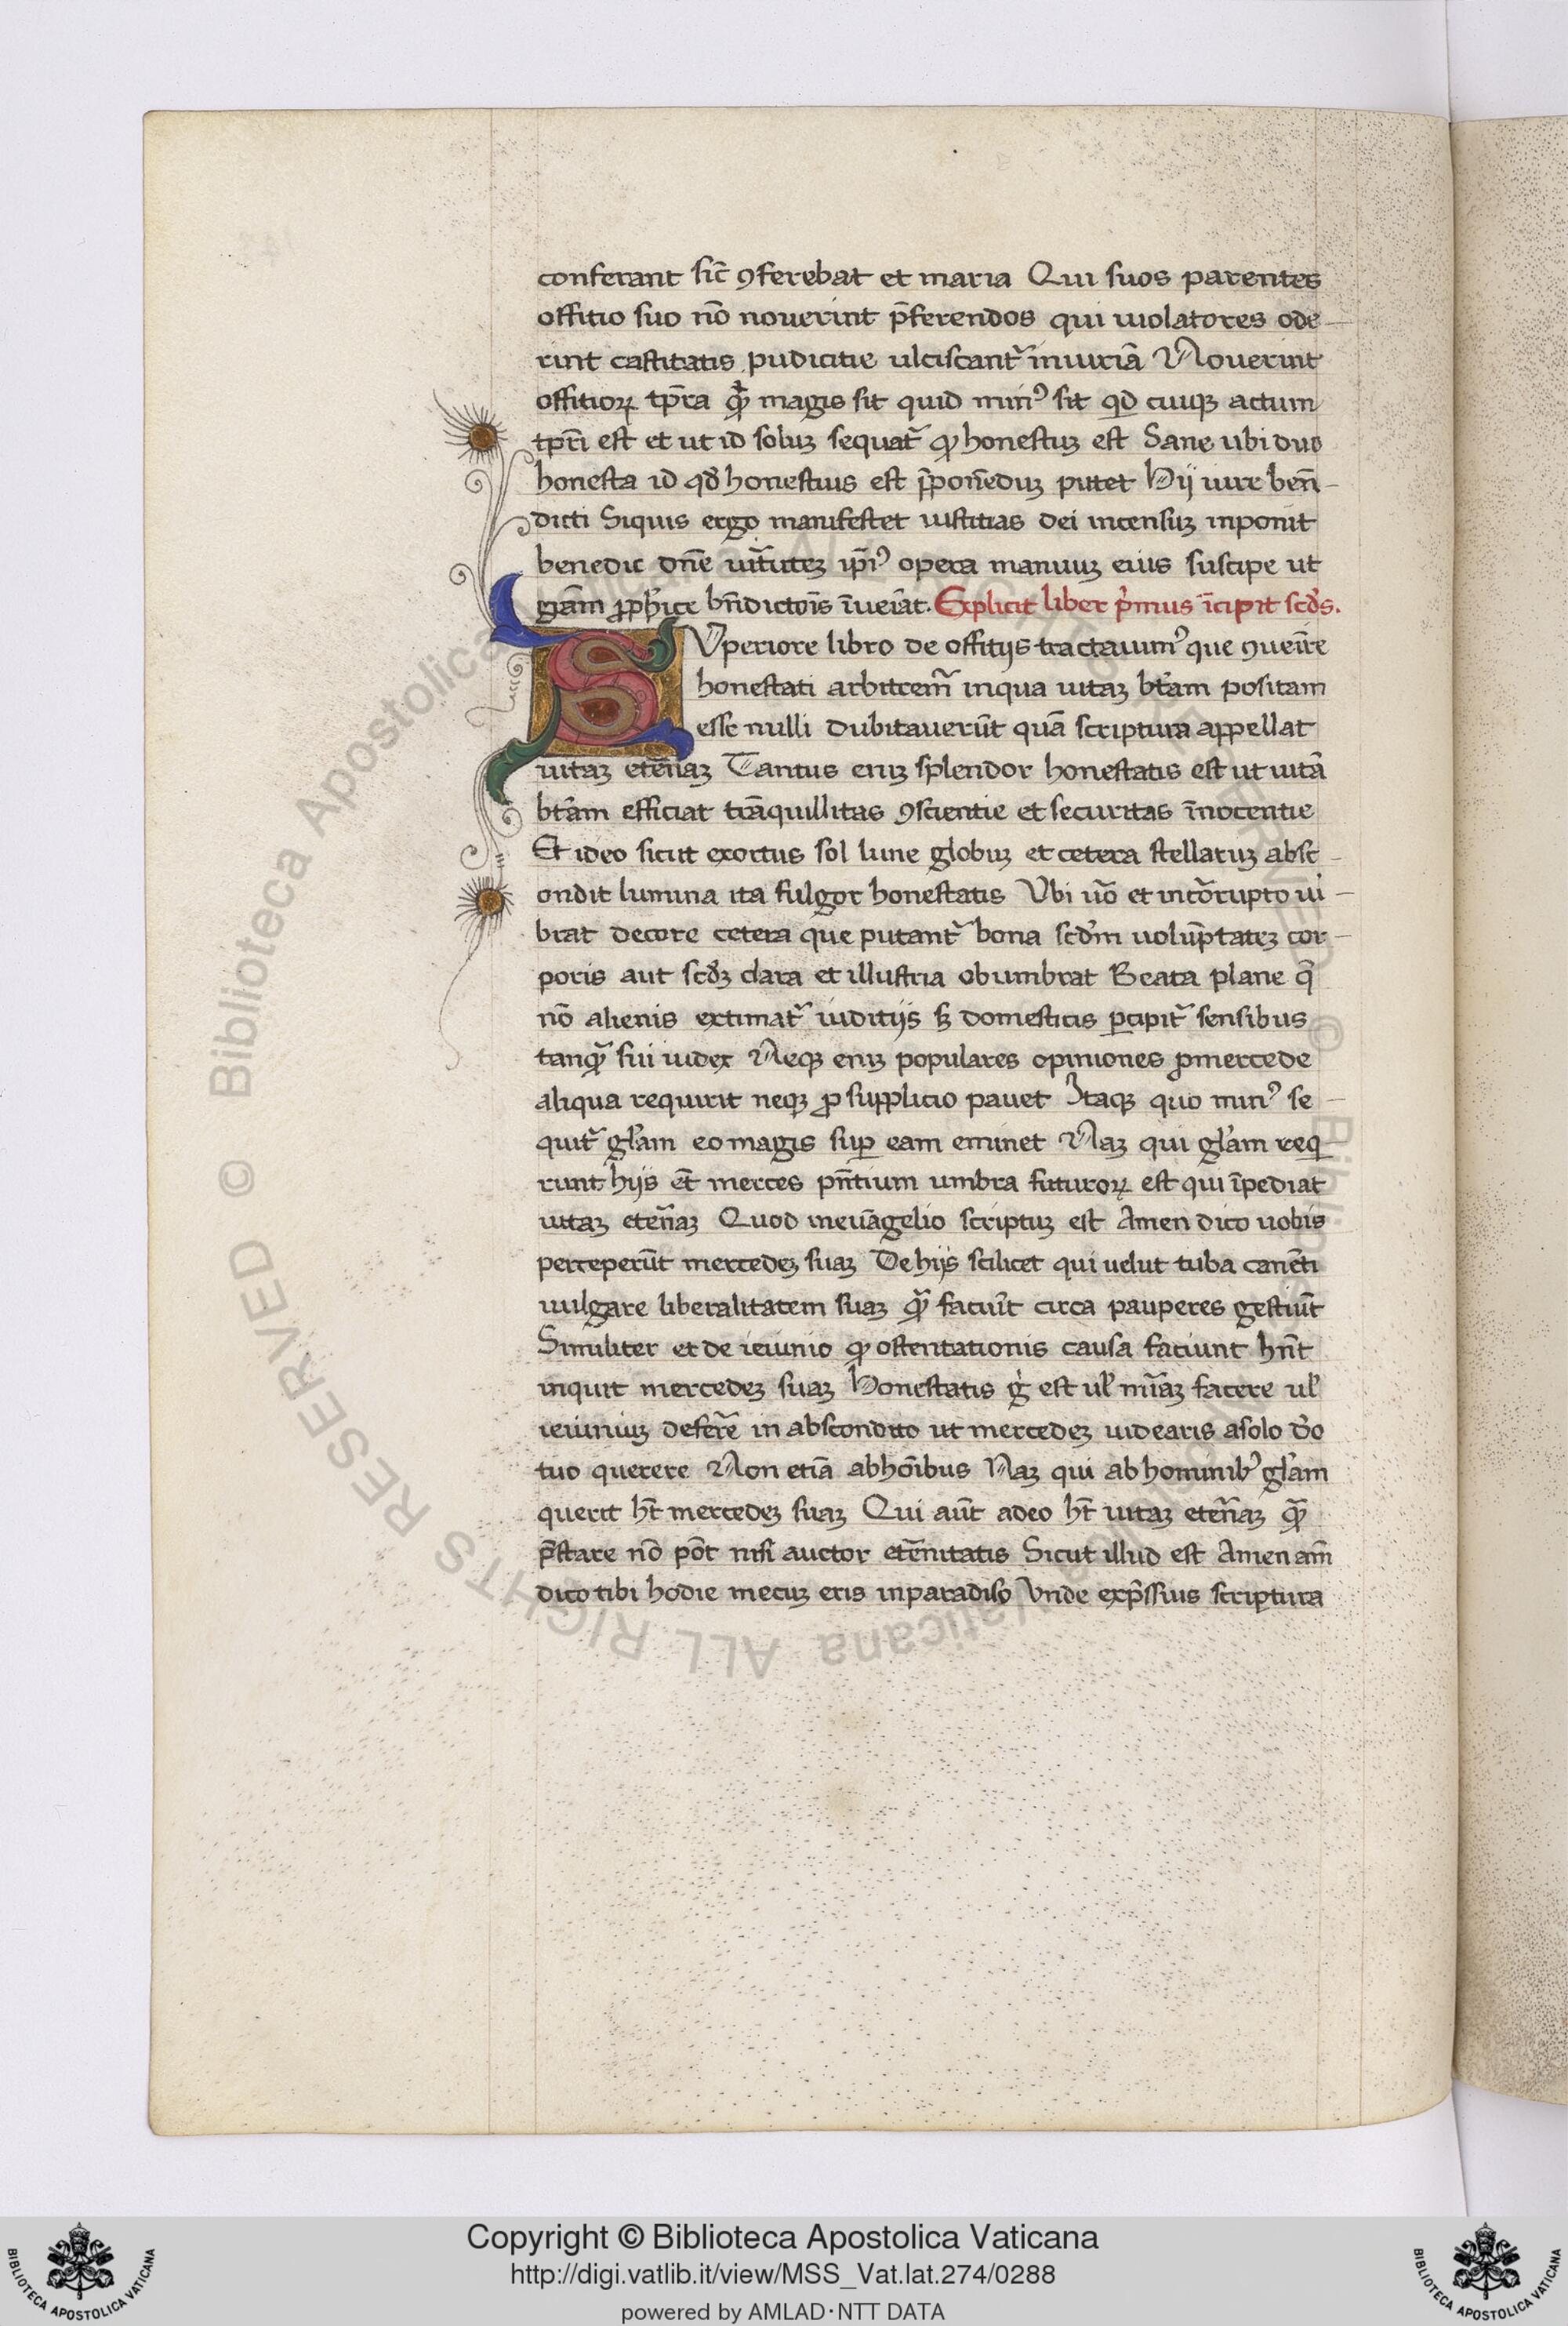 conferant sic̄ ꝯferebat et maria Qui suos parentes
offitio suo nō nouerint p̄ferendos qui uiolatores ode
rint castitatis pudicitie ulciscant᷑ iniuriā Nouerint
offitioꝝ tp̄ra qᷓꝫ magis sit quid minꝰ sit qd cuiqꝫ actum
tpr̄i est et ut id soluꝫ sequat᷑ ꝙ honestuꝫ est Sane ubi duo
honesta id qđ honestius est p̄ponēduꝫ putet Hij iure ben̄
dicti Siquis ergo manifestet iustitias dei incensuꝫ inponit
benedic dn̄e uir̄tuteꝫ ip̄iꝰ opera manuuꝫ eius suscipe ut
grām ꝓph̄ice bn̄dictōis īueiāt. Explicit liber p̄mus īcipit scđs.
Vperiore libro de offitijs tractauimꝰ que ꝯueīre
honestati arbitrem᷑ inqua uitaꝫ bt̄am positam
esse nulli dubitauerūt quā scriptura appellat
uitaꝫ etēnaꝫ Tantus eniꝫ splendor honestatis est ut uitā
bt̄am efficiat trāquillitas ꝯscientie et securitas īnocentie
Et ideo sicut exortus sol lune globuꝫ et cetera stellaruꝫ absc
ondit lumina ita fulgor honestatis Vbi uō et incōrupto ui
brat decore cetera que putant᷑ bona scđm uolup̄tateꝫ cor
poris aut scđꝫ clara et illustria obumbrat Beata plane q̄
nō alienis extimat᷑ iuditijs sꝫ domesticis ꝑcipit᷑ sensibus
tanqᷓꝫ sui iudex Neqꝫ eniꝫ populares opiniones ꝓmercede
aliqua requirit neqꝫ ꝓ supplicio pauet Itaqꝫ quo minꝰ se
quit᷑ gl̄am eo magis suꝑ eam eminet Naꝫ qui gl̄am req
runt hijs et̄ merces pn̄tium umbra futuroꝝ est qui īpediat
uitaꝫ etēnaꝫ Quod ineuāgelio scriptuꝫ est Amen dico uobis
perceperūt mercedeꝫ suaꝫ De hijs scilicet qui uelut tuba canēti
uulgare liberalitatem suaꝫ qᷓꝫ faciūt circa pauperes gestiūt
Similiter et de ieiunio ꝙ ostentationis causa faciunt hn̄t
inquit mercedeꝫ suaꝫ Honestatis g̊ est ul̄ mīaꝫ facere ul̄
ieiuniuꝫ defer̄e in abscondito ut mercedeꝫ uidearis asolo do̅
tuo querere Non etiā abhoībus Naꝫ qui ab hominibꝰ gl̄am
querit hт̄ mercedeꝫ suaꝫ Qui aūt adeo ht̄ uitaꝫ etēnaꝫ qᷓꝫ
p̄stare nō pōt nisi auctor etēnitatis Sicut illud est Amen am̄
dico tibi hodie mecuꝫ eris inparadiso Vnde exp̄ssius scriptura
Copyright © Biblioteca Apostolica Vaticana
http://digi.vatlib.it/view/MSS_Vat.lat.274/0288
powered by AMLAD·NTT DATA